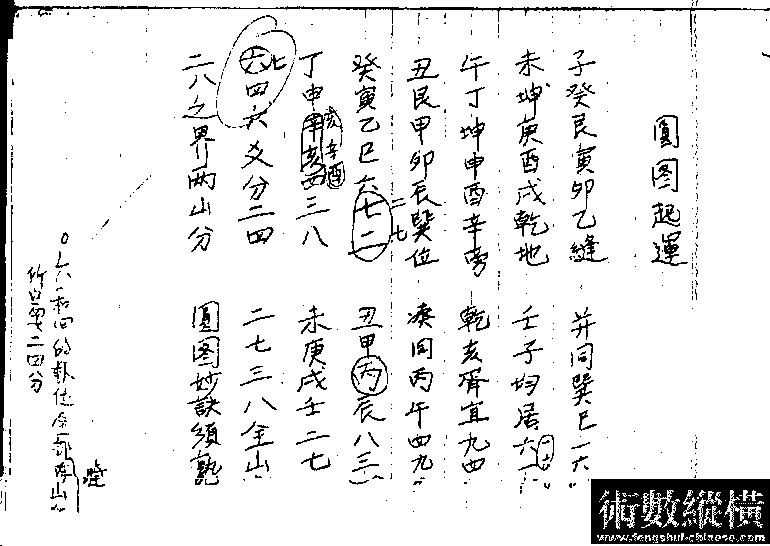 圓图起運
子癸艮寅卯乙縫 并同巽巳一六
未坤庚酉戌乾地 壬子均居六一 一六
午丁坤申酉辛旁 乾亥擠宜九四
丑艮甲卯辰巽位 湊同丙午四九
癸寅乙巳六七二 二七 丑甲丙辰八三
丁申辛亥酉三八 亥辛酉 未庚戌壬二七
六四六爻分二四 七 二七三八全山
二八之界两山分 圓图妙訣須熟
六和四的卦位全部
二四分
術數縱橫
www.fengshui-chinese.com